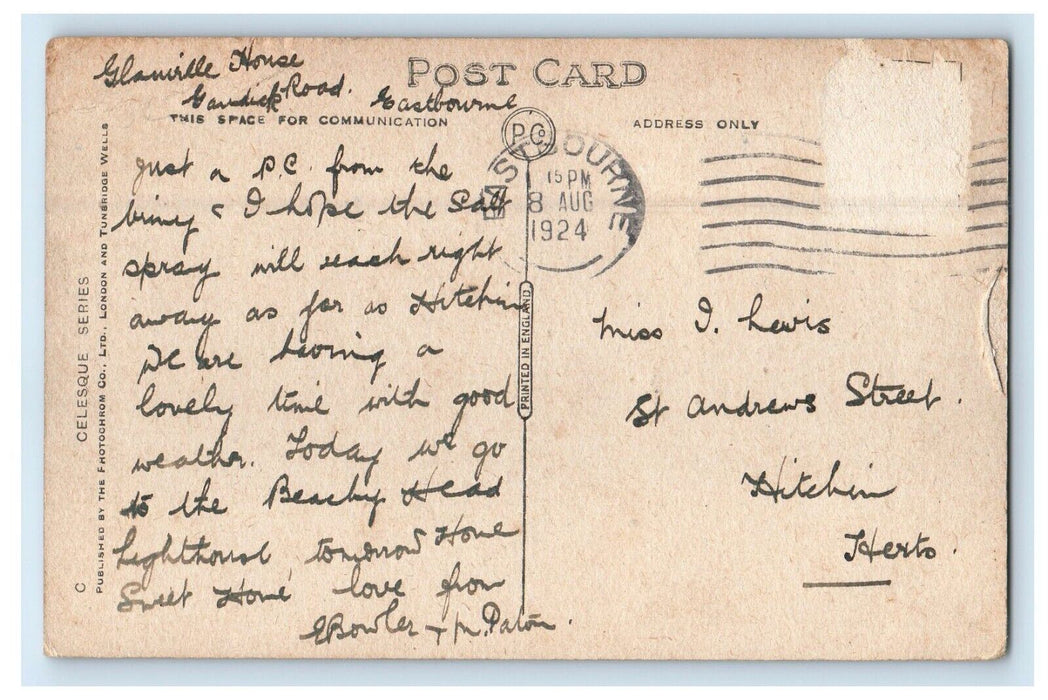 Glanville House
Road.
Eastbourne
POST CARD
THIS SPACE FOR COMMUNICATION
ADDRESS ONLY
P Co
EASTBOURNE
15 PM
8 AUG
1924
Just a P.C. from the
briny & I hope the salt
spray will reach right
away as far as Hitchin
We are having a
lovely time with good
weather. Today we go
to the Beachy Head
lighthouse, tomorrow Home
Sweet Home love from
EBowler + M. Paton.
Miss I. Lewis
St Andrews Street.
Hitchin
Herts.
PRINTED IN ENGLAND
C
CELESQUE SERIES
PUBLISHED BY THE PHOTOCHROM CO., LTD., LONDON AND TUNBRIDGE WELLS